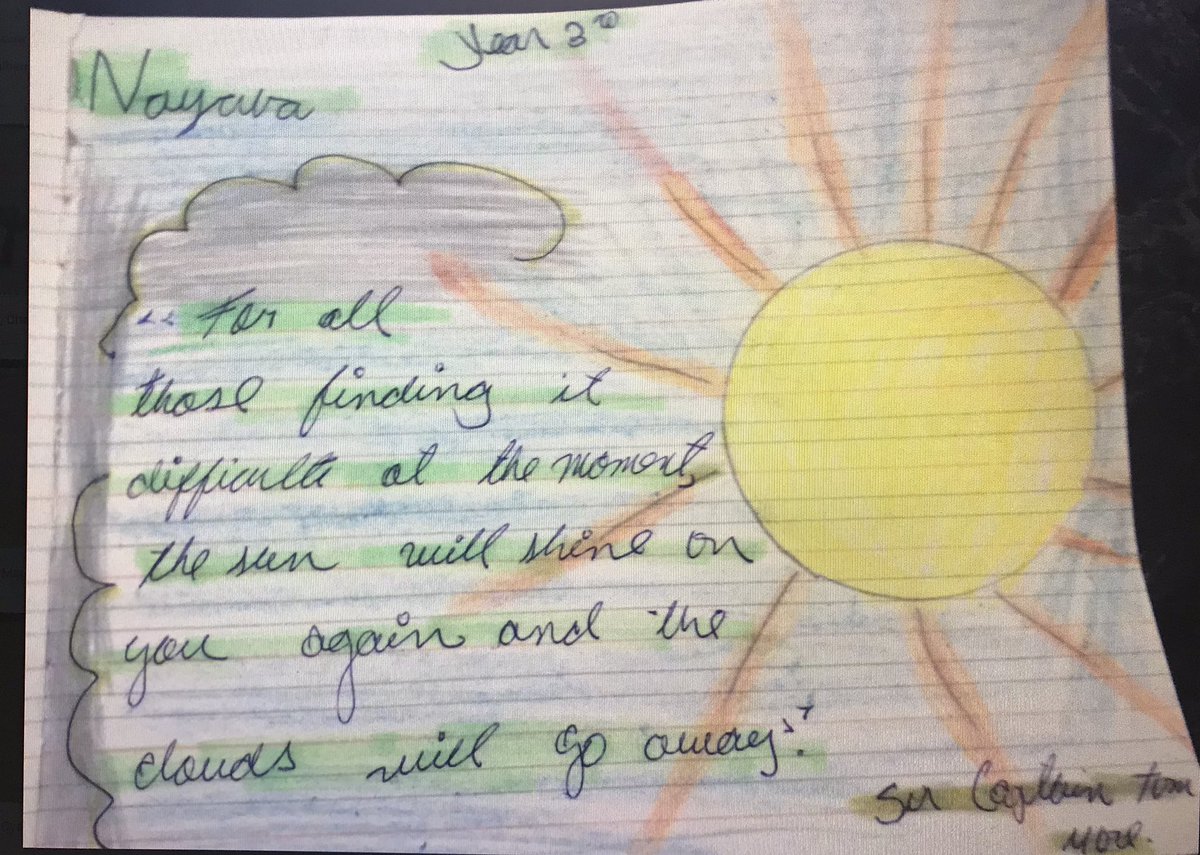 Year 3
Nayara
"For all
those finding it
difficulte at the moment,
the sun will shine on
you again and the
clouds will go away".
Sir Captain Tom
More.